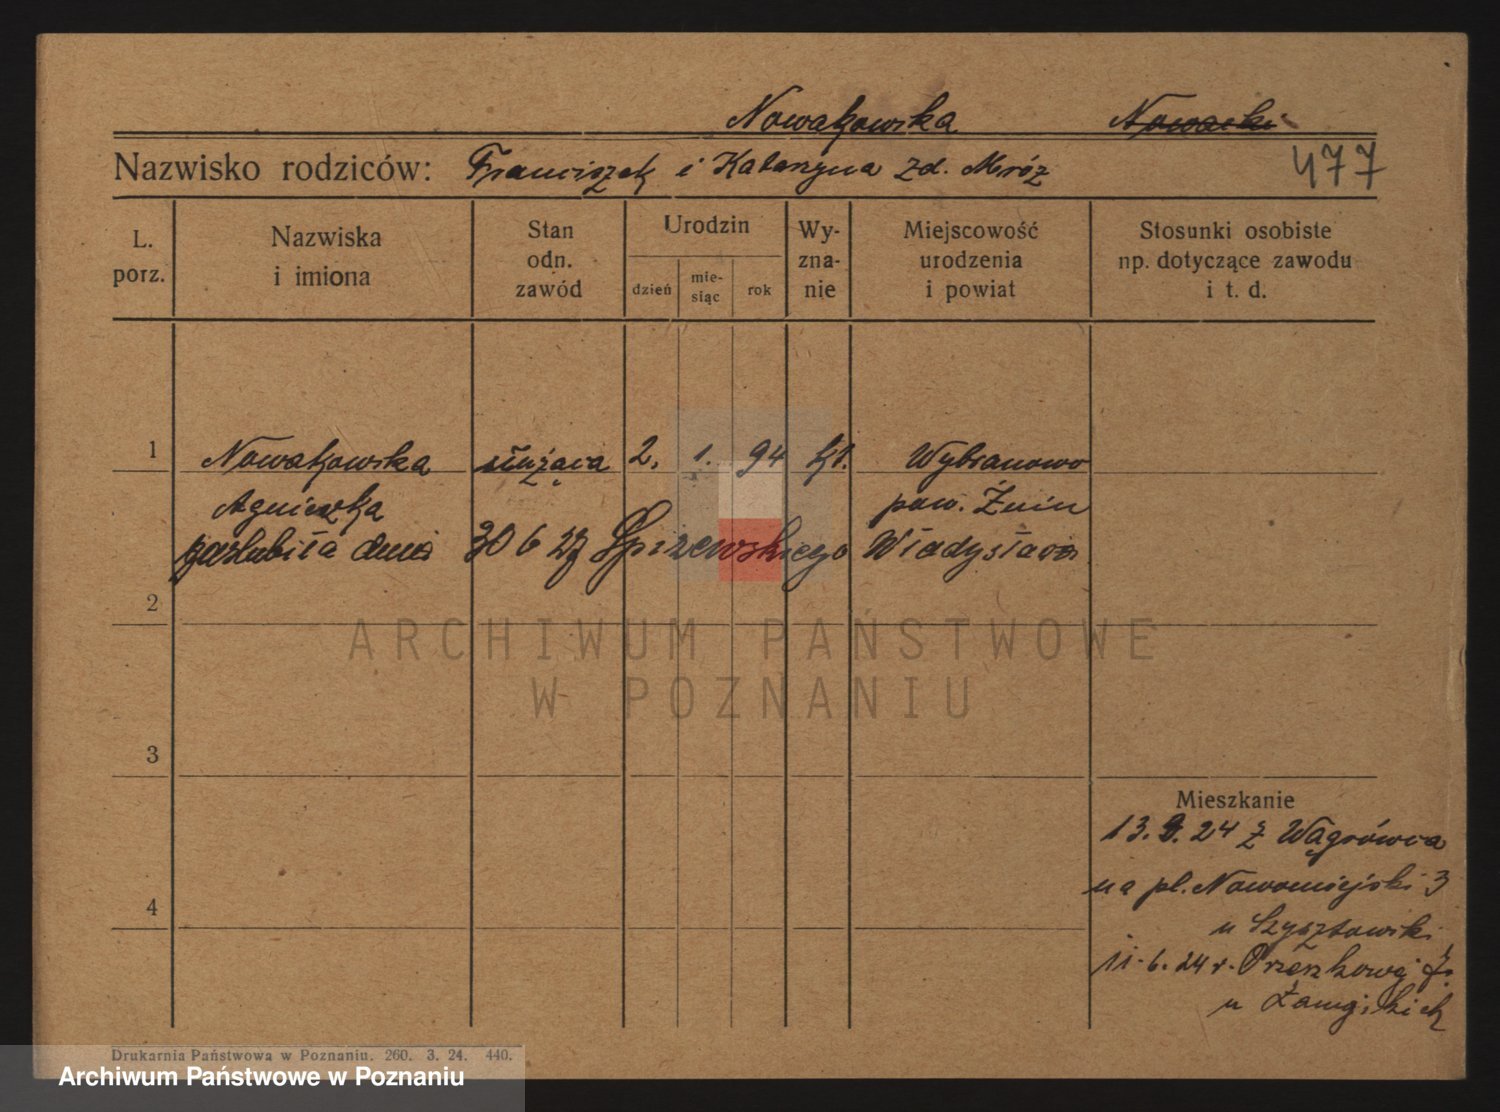 Nowakowska Nowacki
Nazwisko rodziców: Franciszek i Katarzyna zd. Mróz
477
L. porz.
Nazwiska i imiona
Stan odn. zawód
Urodzin
dzień
mie-siąc
rok
Wy-zna-nie
Miejscowość urodzenia i powiat
Stosunki osobiste np. dotyczące zawodu i t. d.
1 Nowakowska służąca 2. 1. 94 kt. Wybranowo
Agnieszka pow. Żnin
poślubiła dnia 30 6 27 Spiżewskiego Władysława
2
ARCHIWUM PAŃSTWOWE
W POZNANIU
3
Mieszkanie
13. 24 z Wągrówca
na pl. Nowomiejski 3
4
u
11. 6. 24 r.
u
Drukarnia Państwowa w Poznaniu. 260. 3. 24. 440.
Archiwum Państwowe w Poznaniu